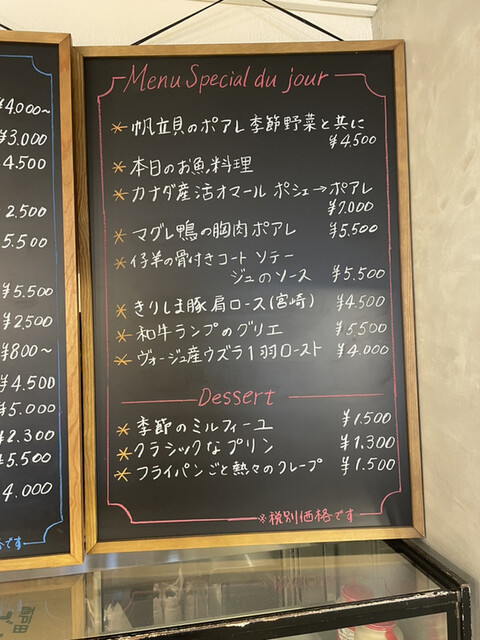 ¥4.000~
¥3.000
4.500
2.500
5.500
¥5.500
¥2,500
¥800~
¥4.500
¥5.000
¥2.300
¥5.500
4.000
です
Menu Special du jour
*帆立貝のポアレ 季節野菜と共に
¥4,500
*本日のお魚料理
*カナダ産活オマール ポシェ→ポアレ
¥7.000
*マグレ鴨の胸肉ポアレ ¥5,500
*仔羊の骨付きコート ソテー
ジュのソース ¥5,500
*きりしま豚肩ロース(宮崎) ¥4500
*和牛ランプのグリエ ¥5,500
*ヴォージュ産ウズラ1羽ロースト ¥4.000
Dessert
*季節のミルフィーユ ¥1.500
*クラシックなプリン ¥1,300
*フライパンごと熱々のクレープ ¥1.500
※税別価格です